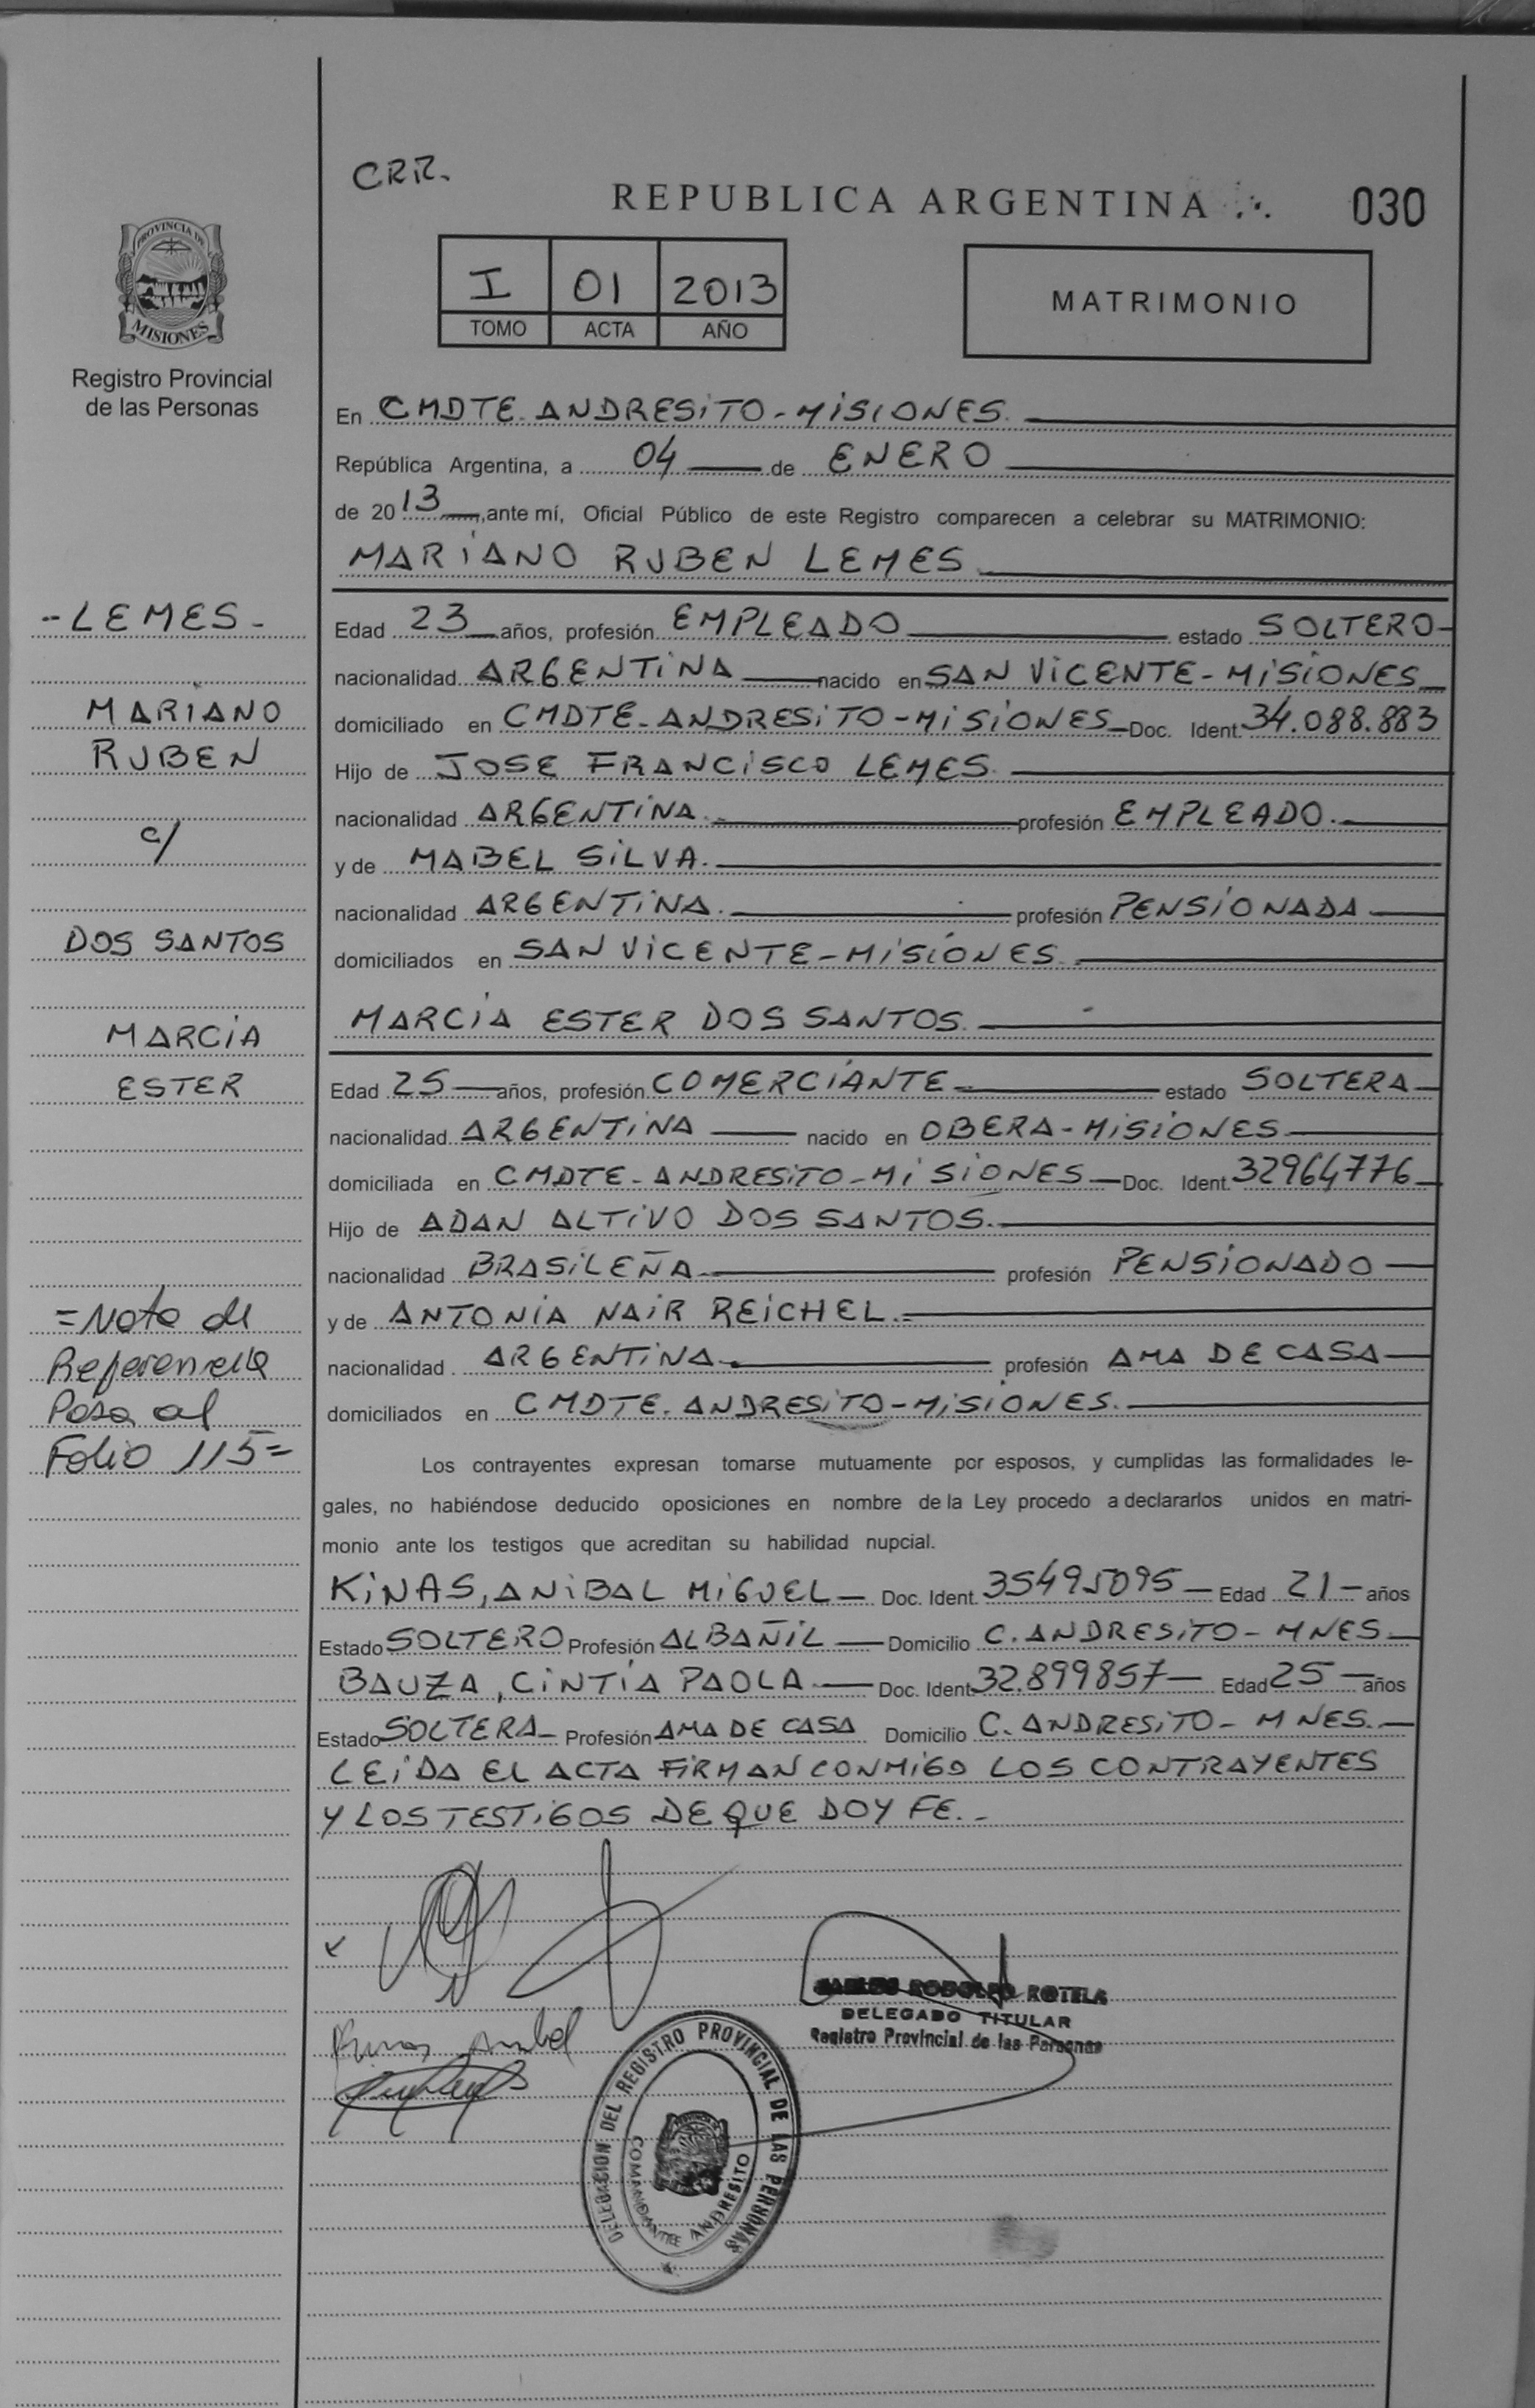 CRR.
REPUBLICA ARGENTINA
030
PROVINCIA DE
MISIONES
I 01 2013
TOMO ACTA AÑO
MATRIMONIO
Registro Provincial
de las Personas
En CMDTE. ANDRESITO - MISIONES.
República Argentina, a 04 de ENERO
de 2013, ante mí, Oficial Público de este Registro comparecen a celebrar su MATRIMONIO:
MARIANO RUBEN LEMES
- LEMES -
MARIANO
RUBEN
c/
DOS SANTOS
MARCIA
ESTER
Edad 23 años, profesión EMPLEADO estado SOLTERO
nacionalidad ARGENTINA nacido en SAN VICENTE - MISIONES
domiciliado en CMDTE. ANDRESITO - MISIONES Doc. Ident. 34.088.883
Hijo de JOSE FRANCISCO LEMES.
nacionalidad ARGENTINA. profesión EMPLEADO.
y de MABEL SILVA.
nacionalidad ARGENTINA. profesión PENSIONADA
domiciliados en SAN VICENTE - MISIONES.
MARCIA ESTER DOS SANTOS.
Edad 25 años, profesión COMERCIANTE estado SOLTERA
nacionalidad ARGENTINA nacido en OBERA - MISIONES
domiciliada en CMDTE. ANDRESITO - MISIONES Doc. Ident. 32964776
Hijo de ADAN ALTIVO DOS SANTOS.
nacionalidad BRASILEÑA profesión PENSIONADO
y de ANTONIA NAIR REICHEL.
nacionalidad ARGENTINA profesión AMA DE CASA
domiciliados en CMDTE. ANDRESITO - MISIONES.
= Nota de
Referencia
Pasa al
Folio 115 =
Los contrayentes expresan tomarse mutuamente por esposos, y cumplidas las formalidades le-
gales, no habiéndose deducido oposiciones en nombre de la Ley procedo a declararlos unidos en matri-
monio ante los testigos que acreditan su habilidad nupcial.
KINAS, ANIBAL MIGUEL Doc. Ident. 35495095 Edad 21 años
Estado SOLTERO Profesión ALBAÑIL Domicilio C. ANDRESITO - MNES
BAUZA, CINTIA PAOLA Doc. Ident. 32.899857 Edad 25 años
Estado SOLTERA Profesión AMA DE CASA Domicilio C. ANDRESITO - MNES.
LEIDA EL ACTA FIRMAN CONMIGO LOS CONTRAYENTES
Y LOS TESTIGOS DE QUE DOY FE.
RODOLFO ROTELA
DELEGADO TITULAR
Registro Provincial de las Personas
Kinas Anibal
DELEGACION DEL REGISTRO PROVINCIAL DE LAS PERSONAS
COMANDANTE ANDRESITO